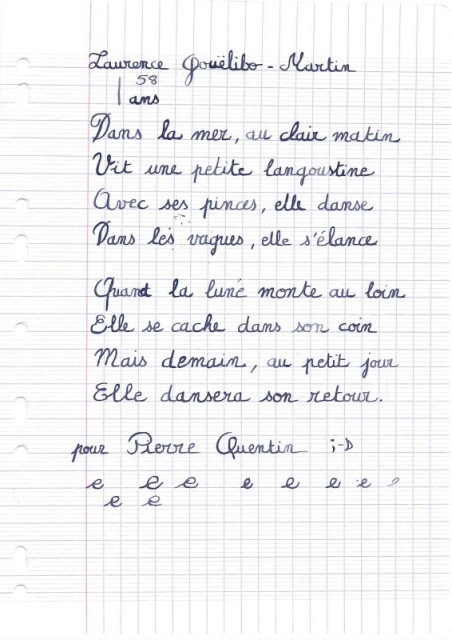 Laurence Gouëlibo - Martin
58
ans
Dans la mer, au clair matin
Vit une petite langoustine
Avec ses pinces, elle danse
Dans les vagues, elle s'élance
Quand la lune monte au loin
Elle se cache dans son coin
Mais demain, au petit jour
Elle dansera son retour.
pour Pierre Quentin ;-D
e e e e e e e e
e e